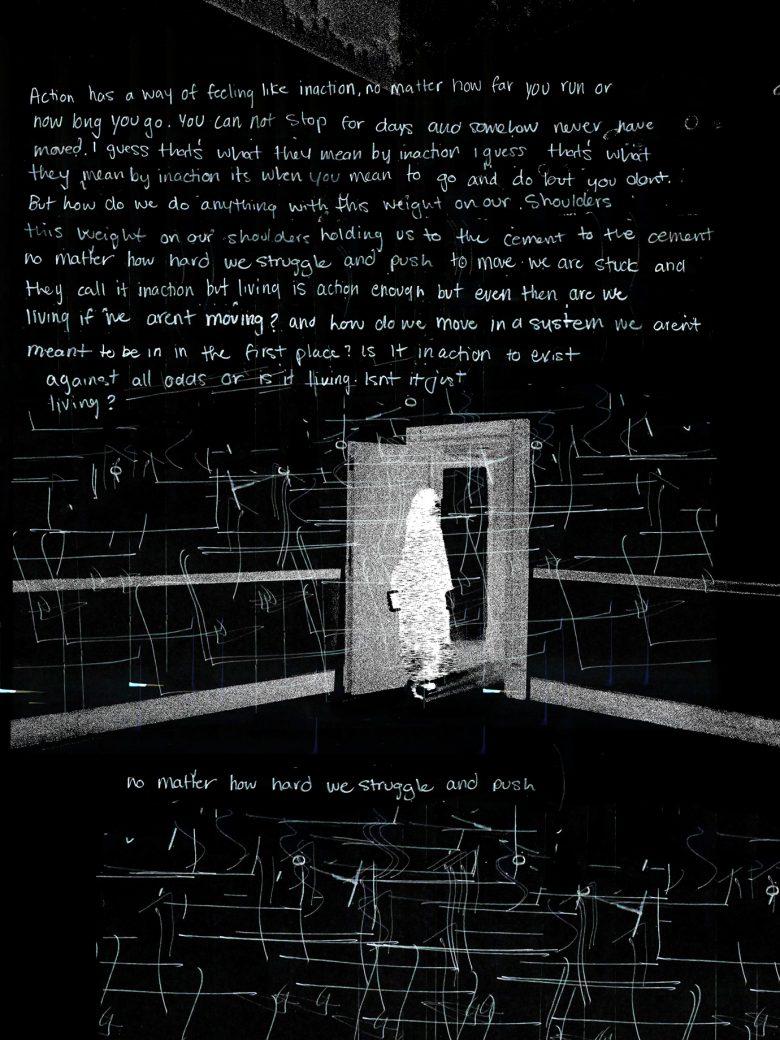 Action has a way of feeling like inaction, no matter how far you run or
how long you go. You can not stop for days and somehow never have
moved. I guess that's what they mean by inaction I guess that's what
they mean by inaction its when you mean to go and do but you dont.
But how do we do anything with this weight on our shoulders
this weight on our shoulders holding us to the cement to the cement
no matter how hard we struggle and push to move. we are stuck and
they call it inaction but living is action enough but even then are we
living if we arent moving? and how do we move in a system we arent
meant to be in in the first place? Is it inaction to exist
against all odds or is it living. Isnt it just
living?
no matter how hard we struggle and push